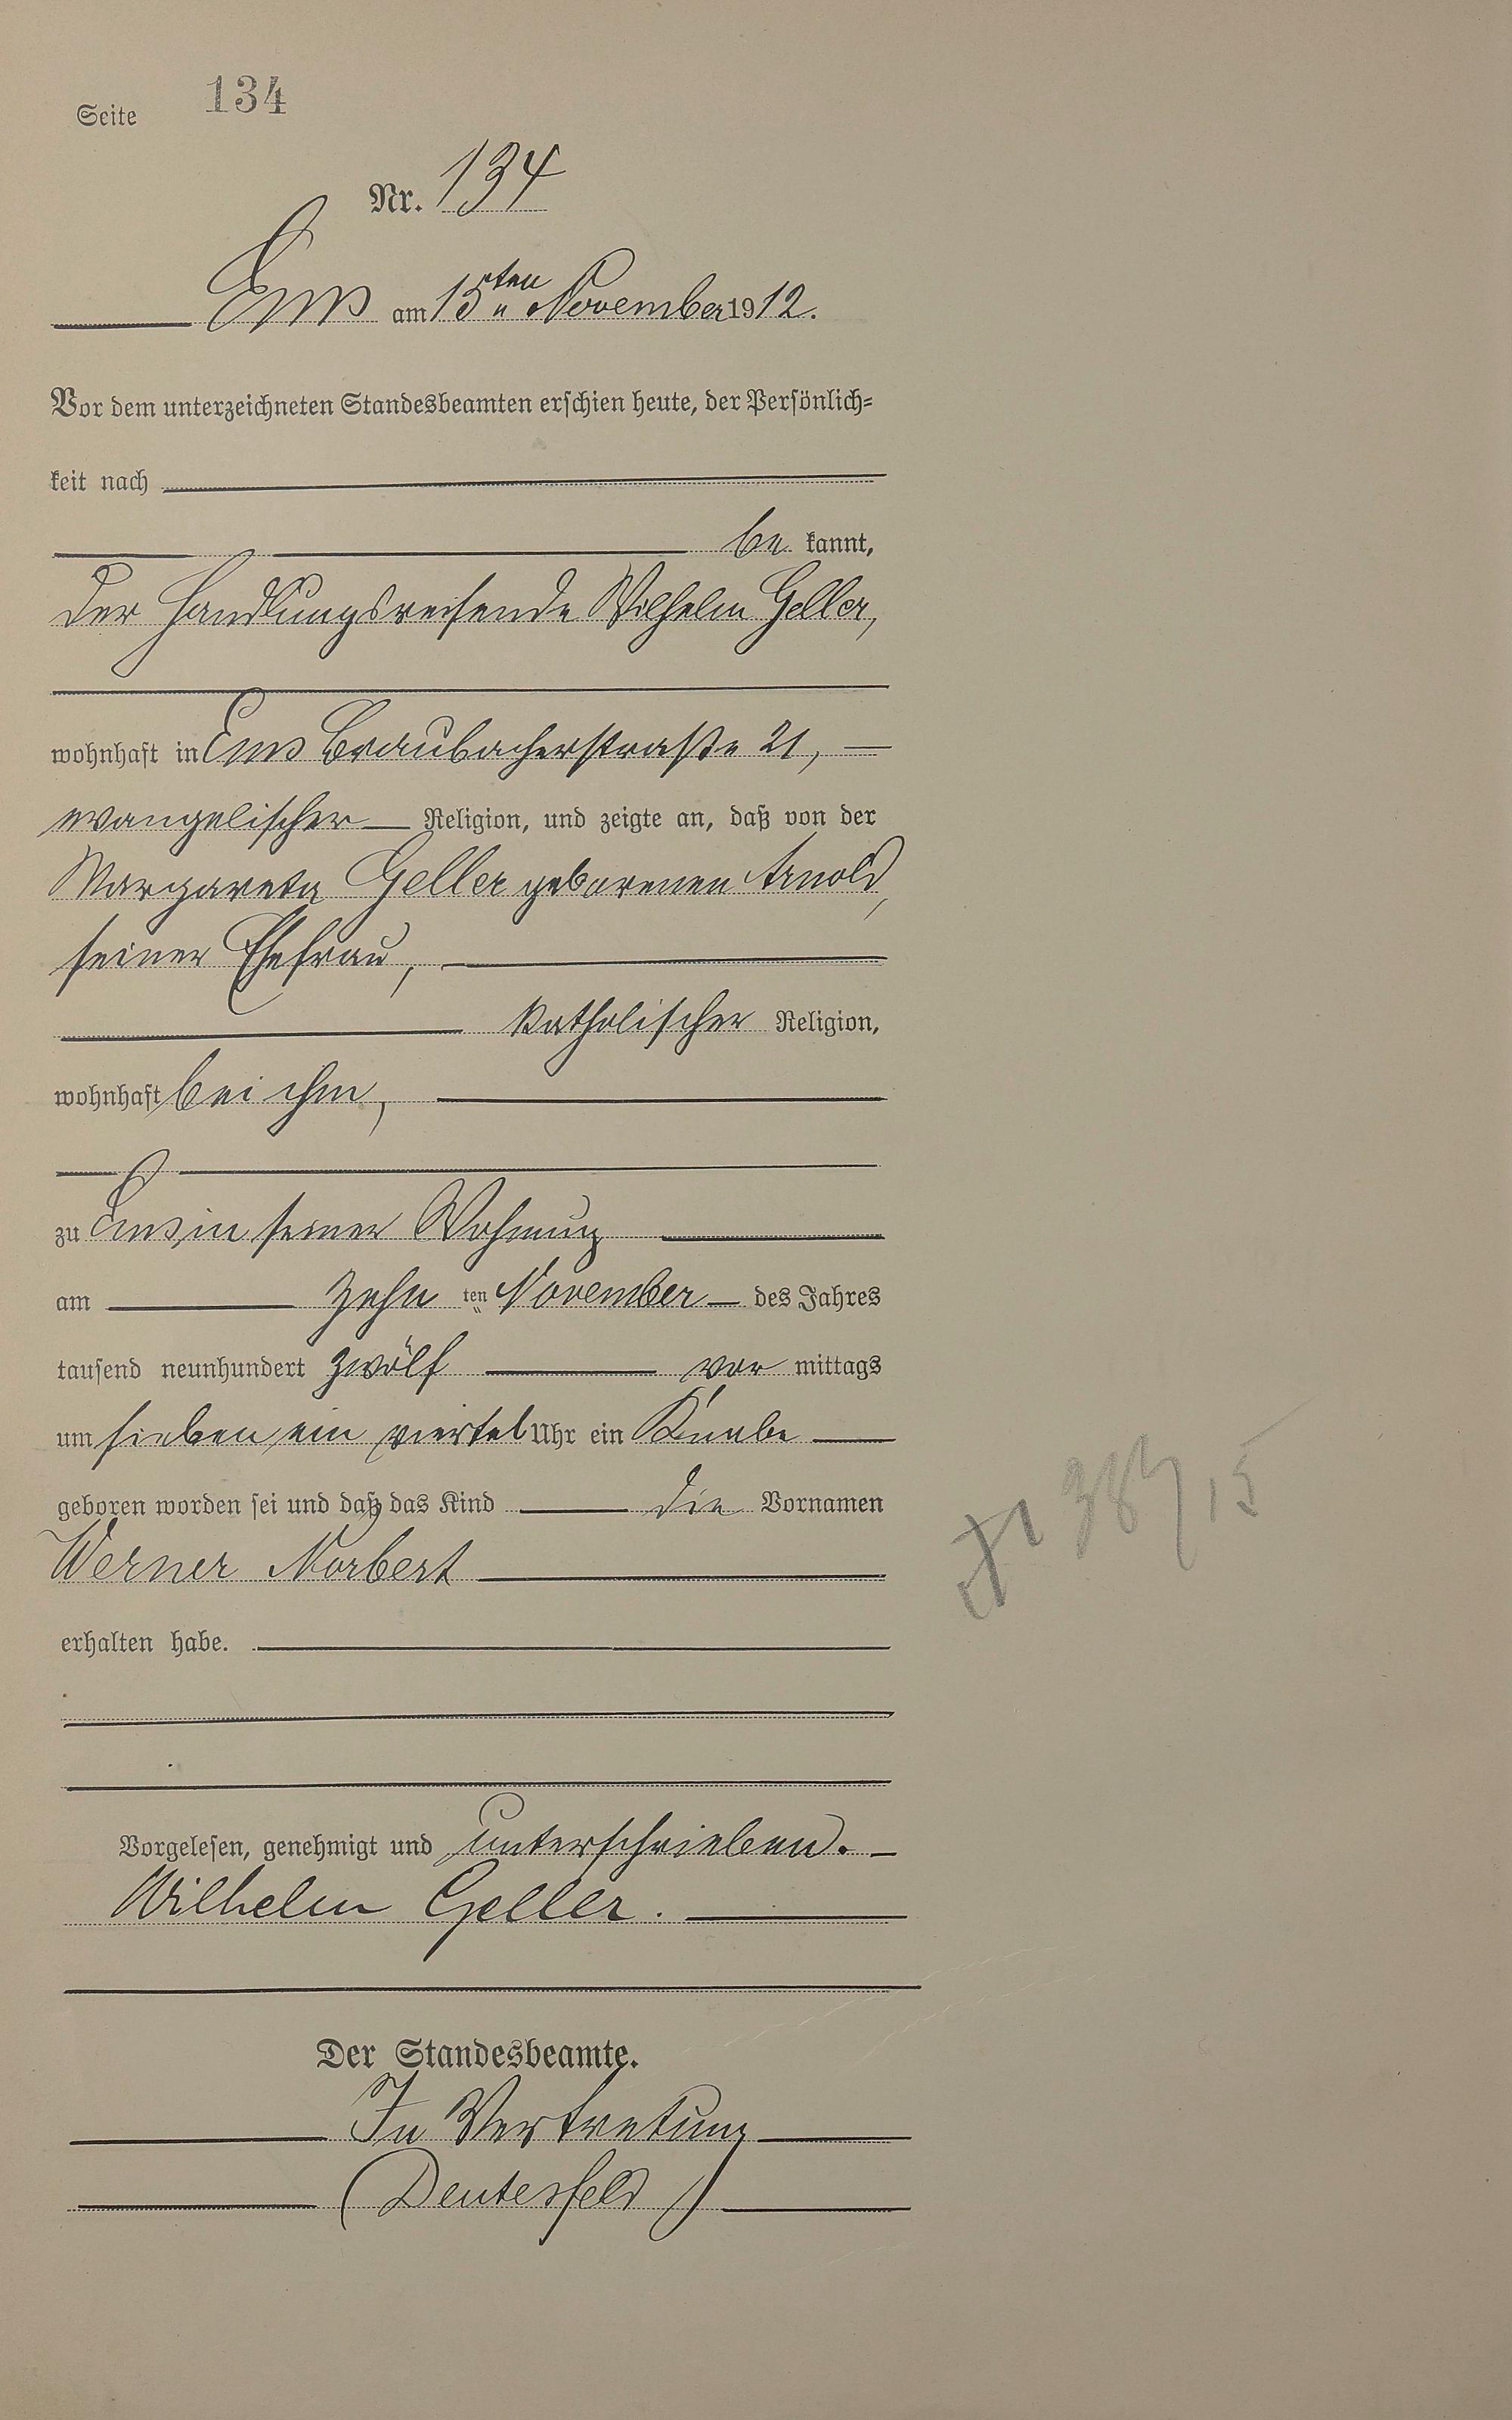 Seite 134
Nr. 134
Ems am 15ten November 1912.
Vor dem unterzeichneten Standesbeamten erschien heute, der Persönlich=
keit nach
be kannt,
der Handlungsreisende Wilhelm Geller,
wohnhaft in Ems Braubacherstraße 21,
evangelischer Religion, und zeigte an, daß von der
Margareta Geller geborenen Arnold,
seiner Ehefrau,
katholischer Religion,
wohnhaft bei ihm,
zu Ems, in seiner Wohnung
am zehn ten November des Jahres
tausend neunhundert zwölf vor mittags
um sieben ein viertel Uhr ein Knabe
geboren worden sei und daß das Kind die Vornamen
Werner Norbert
erhalten habe.
Vorgelesen, genehmigt und unterschrieben.
Wilhelm Geller.
Der Standesbeamte.
In Vertretung
(Deutesfeld)